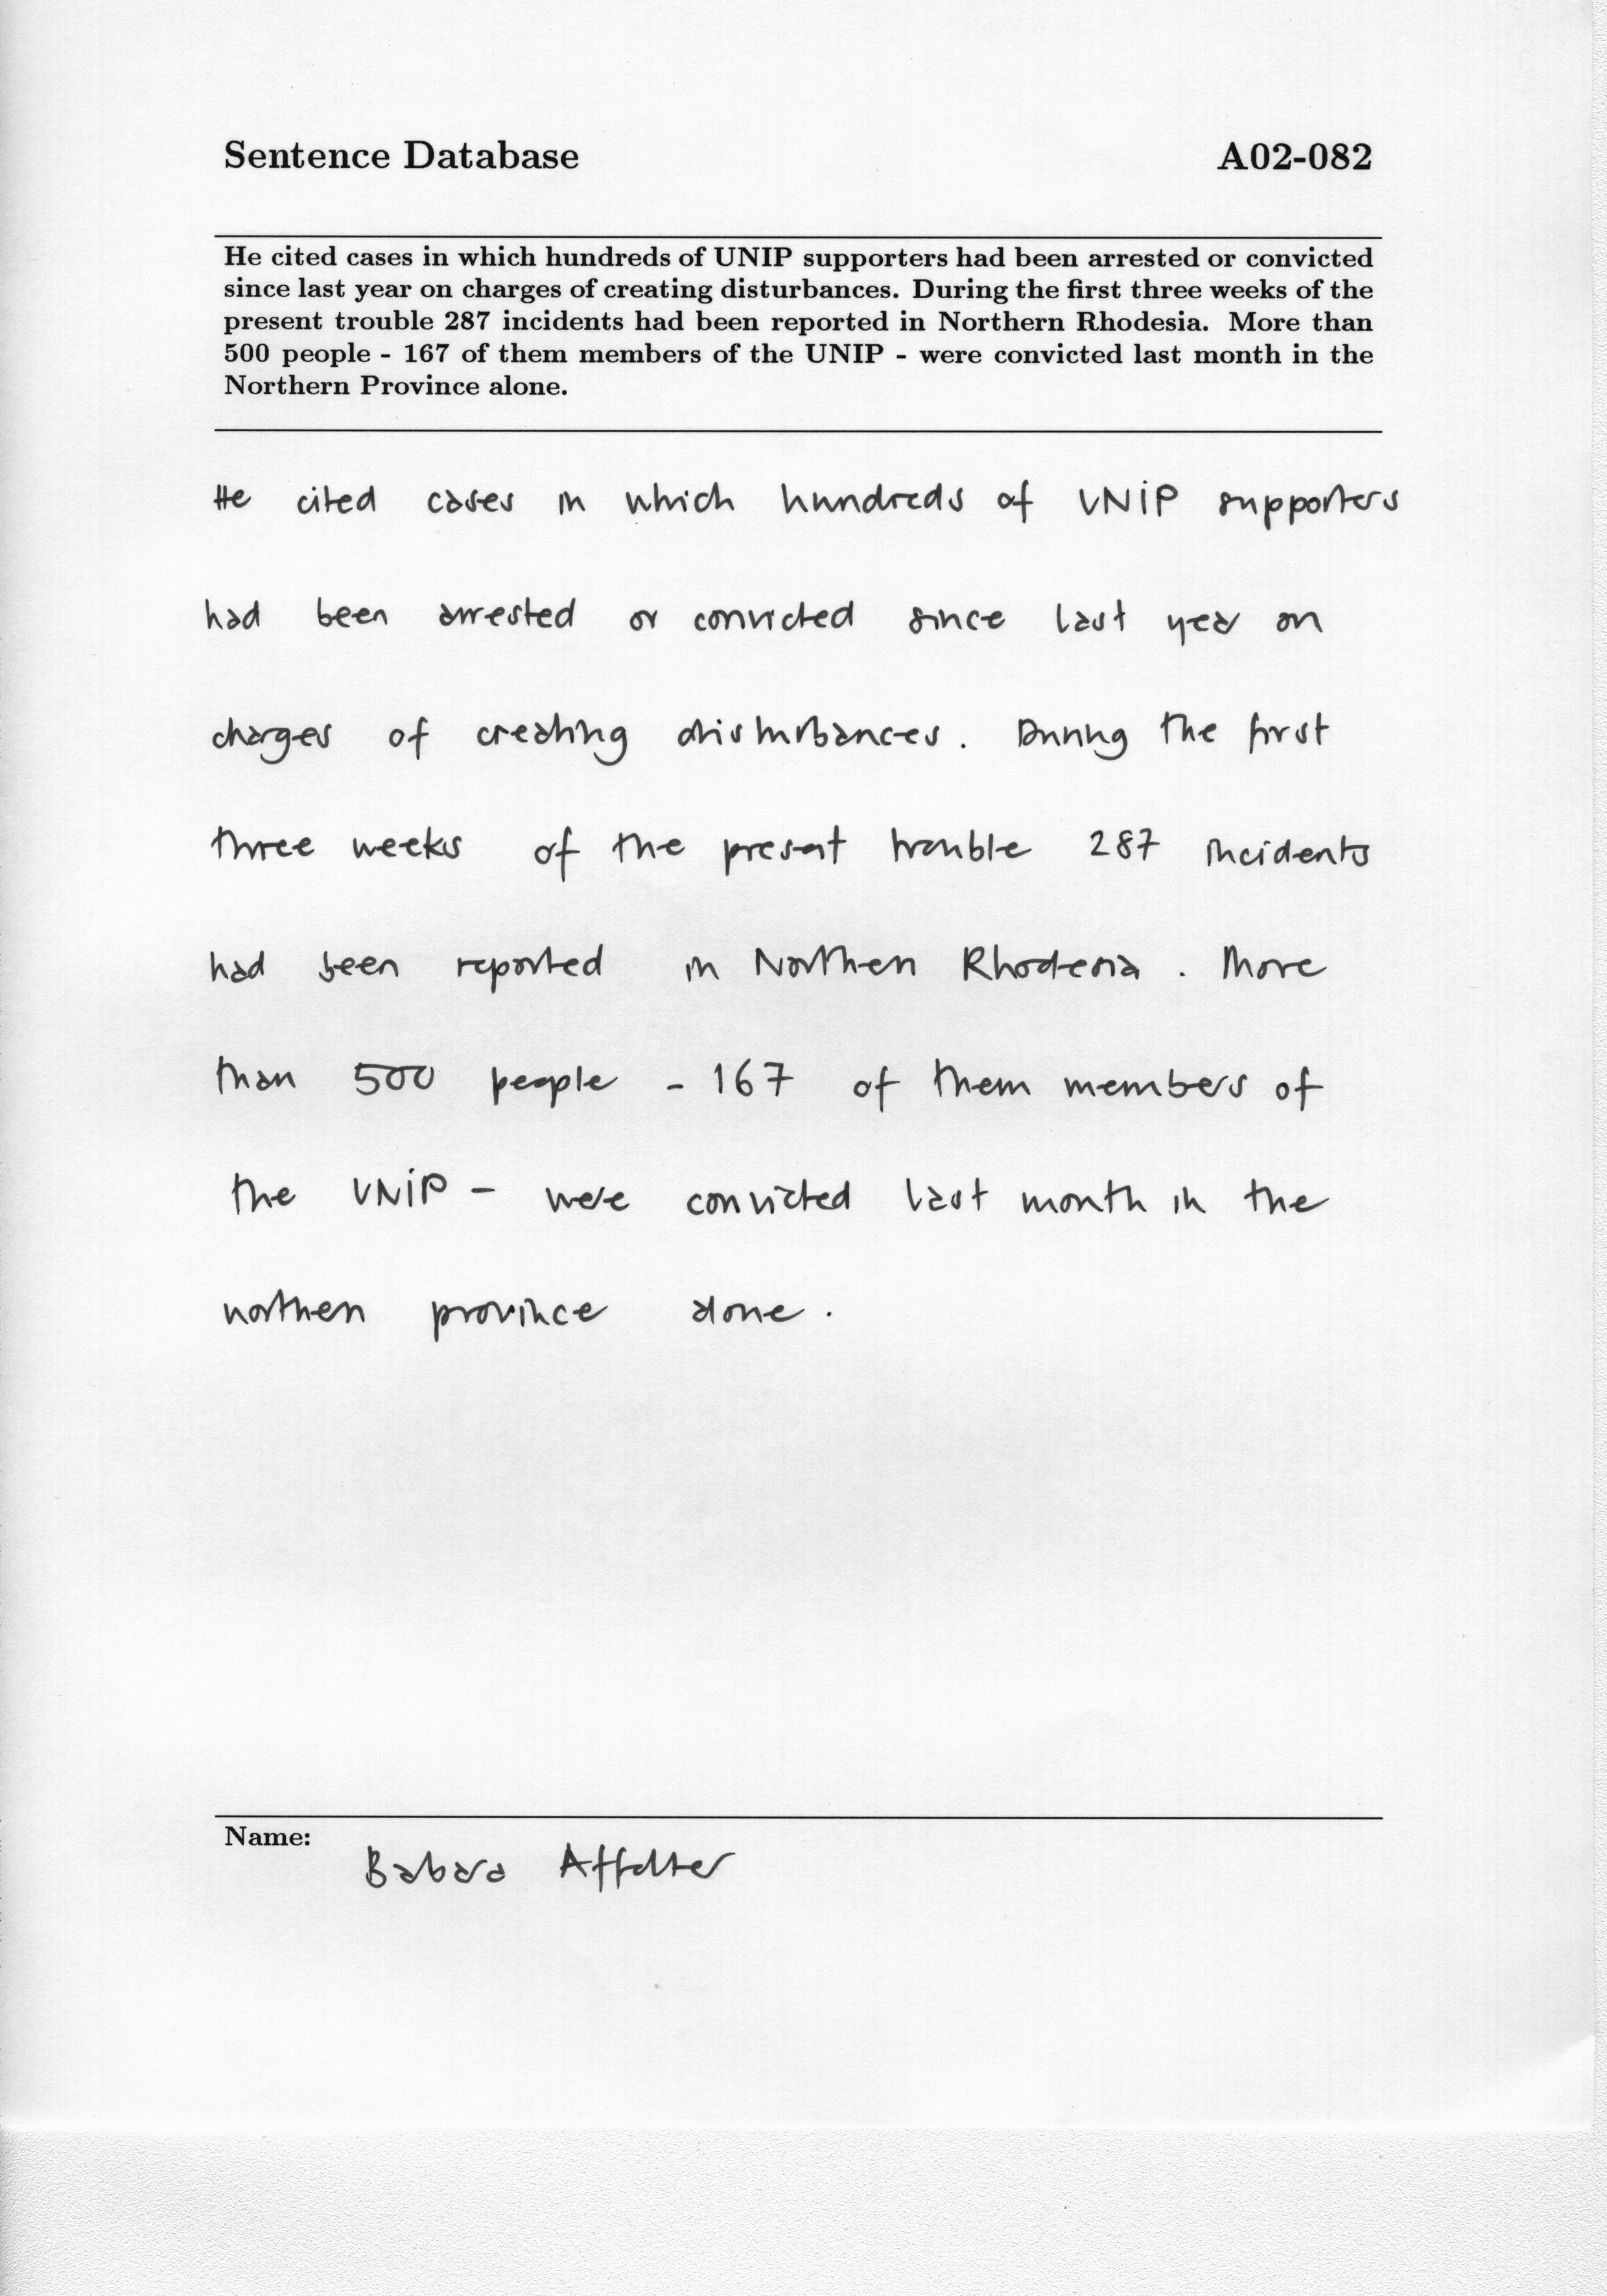 Sentence Database A02-082
He cited cases in which hundreds of UNIP supporters had been arrested or convicted
since last year on charges of creating disturbances. During the first three weeks of the
present trouble 287 incidents had been reported in Northern Rhodesia. More than
500 people - 167 of them members of the UNIP - were convicted last month in the
Northern Province alone.
He cited cases in which hundreds of UNIP supporters
had been arrested or convicted since last year on
charges of creating disturbances. During the first
three weeks of the present trouble 287 incidents
had been reported in Northen Rhodesia. More
than 500 people - 167 of them members of
the UNIP - were convicted last month in the
northen province alone.
Name:
Babara Affolter